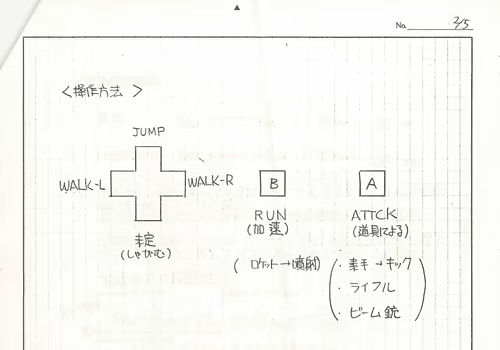 No. 2/5
<操作方法>
JUMP
WALK-L
WALK-R
B
A
未定
(しゃがむ)
RUN
(加速)
ATTCK
(道具による)
(ロケット→噴射)
・素手→キック
・ライフル
・ビーム銃